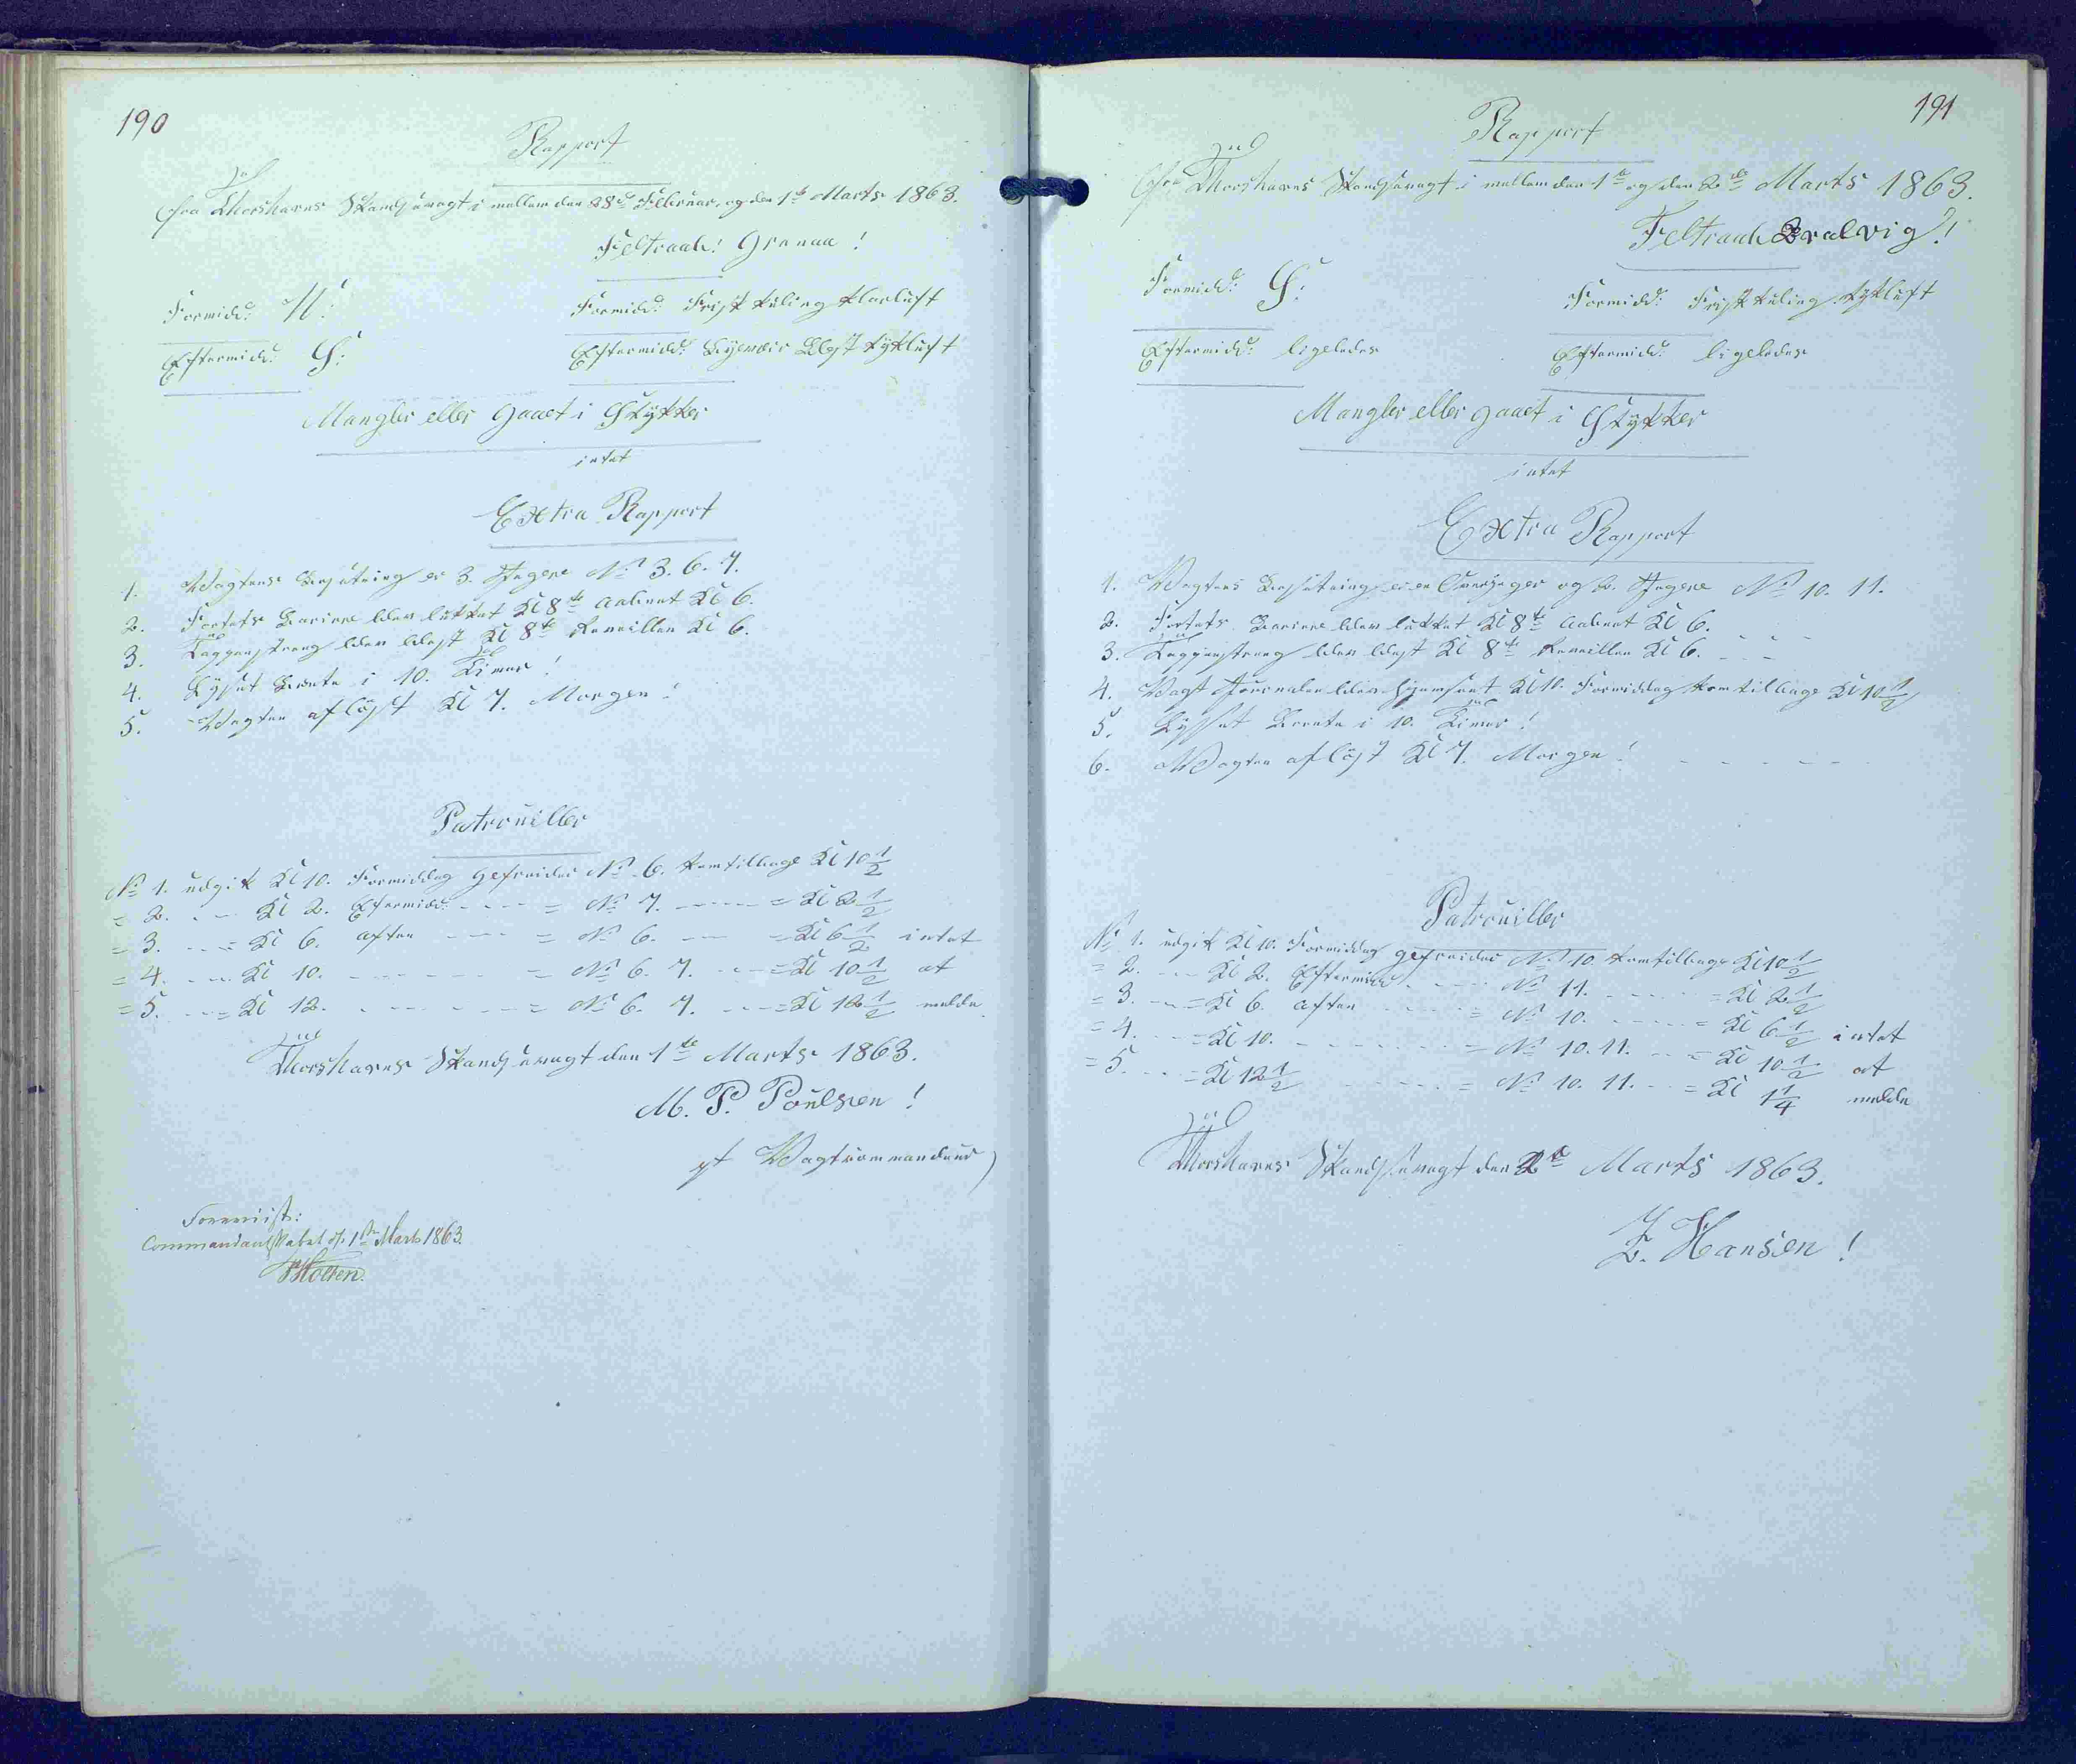 190
Rapport
fra Thorshavns Skandsevagt i mellem den 28de Februar, og den 1te Marts 1863.
Feltraab! Grenaa!
Formidd: N:
Formidd: Frisk Kuling Klarluft
Eftermidd: S:
Eftermidd: Blæst tykluft
Mangler eller gaaet i Stykker
intet
Extra Rapport
1. Vagtens Besætning er 3. Jægere No 3. 6. 7.
2. Fortets Bariere blev lukket Kl 8te aabnet Kl 6.
3. Tappenstreg blev blæst Kl 8te Reveillen Kl 6.
4. Lyset brænte i 10. Timer!
5. Vagten afløst Kl 7. Morgen!
Patrouiller
No 1. udgik Kl 10. Formiddag gefreider No 6. kom tilbage Kl 10 1/2
= 2. - - Kl 2. Eftermidd: - - - = No 7. - - - = Kl 2 1/2
= 3. - - = Kl 6. aften - - - = No 6. - - = Kl 6 1/2 intet
= 4. - - Kl 10. - - - - = No 6. 7. - - = Kl 10 1/2 at
= 5. - - = Kl 12. - - - - = No 6. 7. - - = Kl 12 1/2 melde
Thorshavns Skandsevagt den 1te Marts 1863.
M. P. Poulsen!
pt Vagtcommandeur
Foreviist:
Commandantskabet d. 1ste Marts 1863.
191
Rapport
fra Thorshavns Skandsevagt i mellem den 1te og den 2de Marts 1863.
Feltraab Bralvig!
Formidd: S:
Formidd: Frisk Kuling tykluft
Eftermidd: ligeledes
Eftermidd: ligeledes
Mangler eller gaaet i Stykker
intet
Extra Rapport
1. Vagtens Besætning er en Overjæger og 2. Jægere No 10. 11.
2. Fortets Bariere blev lukket Kl 8te aabnet Kl 6.
3. Tappenstreg blev blæst Kl 8te Reveillen Kl 6.
4. Vagt Journalen blev hjemsent Kl 10. Formiddag kom tilbage Kl 10 1/2
5. Lysset brænte i 10. Timer!
6. Vagten afløst Kl 7. Morgen!
Patrouiller
No 1. udgik Kl 10. Formiddag gefreider No 10 kom tilbage Kl 10 1/2
= 2. - - Kl 2. Eftermidd. - - - No 11. - - - = Kl 2 1/2
= 3. - - = Kl 6. aften - - - = No 10. - - - = Kl 6 1/2 intet
= 4. - - = Kl 10. - - - - = No 10. 11. - - = Kl 10 1/2 at
= 5. - - = Kl 12 1/2 - - - = No 10. 11. - - = Kl 1 1/4 melde
Thorshavns Skandsevagt den 2de Marts 1863.
Z. Hansen!